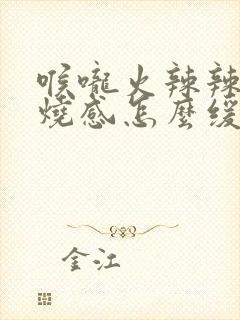 喉嚨火辣辣
燒感怎麼緩
金江